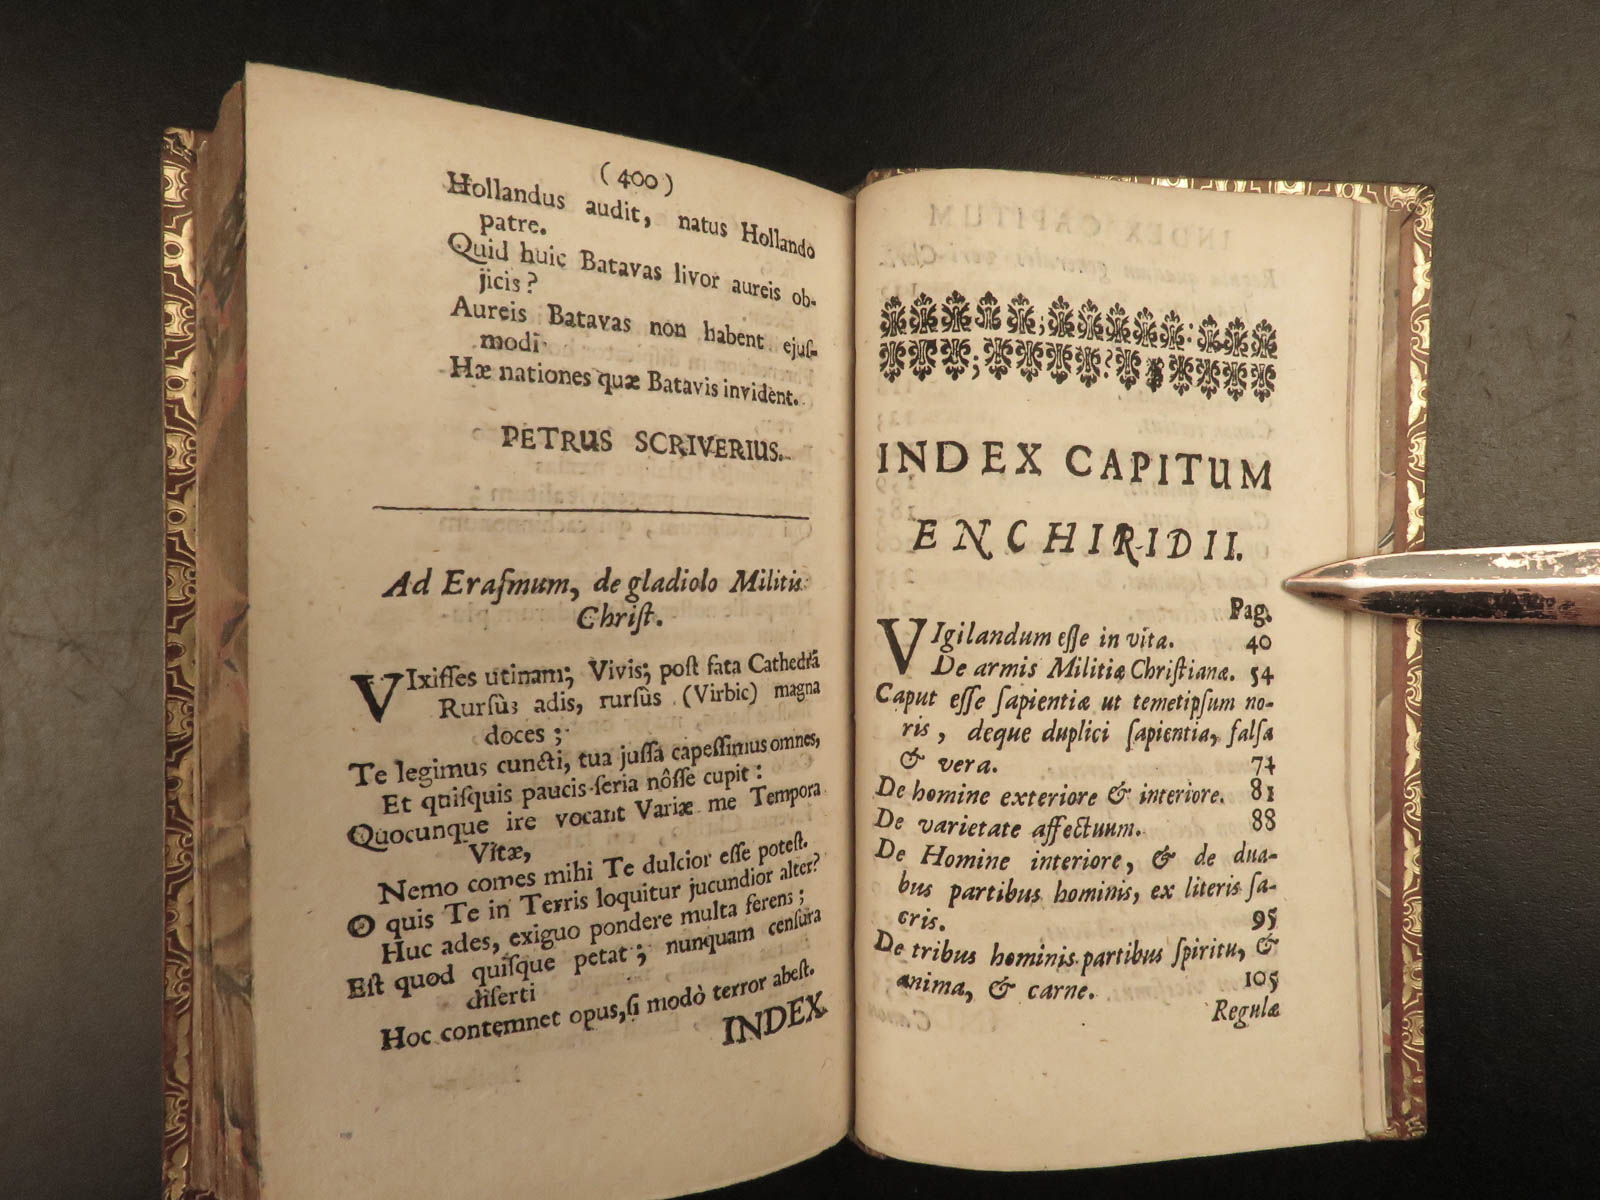 (400)
Hollandus audit, natus Hollando
patre.
Quid huic Batavas livor aureis ob-
jicis?
Aureis Batavas non habent ejuſ-
modi
Hæ nationes quæ Batavis invident.
PETRUS SCRIVERIUS.
Ad Eraſmum, de gladiolo Militis
Chriſt.
VIxiſſes utinam; Vivis; poſt fata Cathedrâ
Rurſùs adis, rurſùs (Virbic) magna
doces;
Te legimus cuncti, tua juſſa capeſſimus omnes,
Et quiſquis paucis ſeria nôſſe cupit:
Quocunque ire vocant Variæ me Tempora
Vitæ,
Nemo comes mihi Te dulcior eſſe poteſt.
O quis Te in Terris loquitur jucundior alter?
Huc ades, exiguo pondere multa ferens;
Eſt quod quiſque petat; nunquam cenſura
diſerti
Hoc contemnet opus, ſi modò terror abeſt.
INDEX
INDEX CAPITUM
ENCHIRIDII.
Pag.
VIgilandum eſſe in vita. 40
De armis Militiæ Chriſtianæ. 54
Caput eſſe ſapientiæ ut temetipſum no-
ris, deque duplici ſapientia, falſa
& vera. 74
De homine exteriore & interiore. 81
De varietate affectuum. 88
De Homine interiore, & de dua-
bus partibus hominis, ex literis ſa-
cris. 95
De tribus hominis partibus ſpiritu, &
anima, & carne. 105
Regulæ